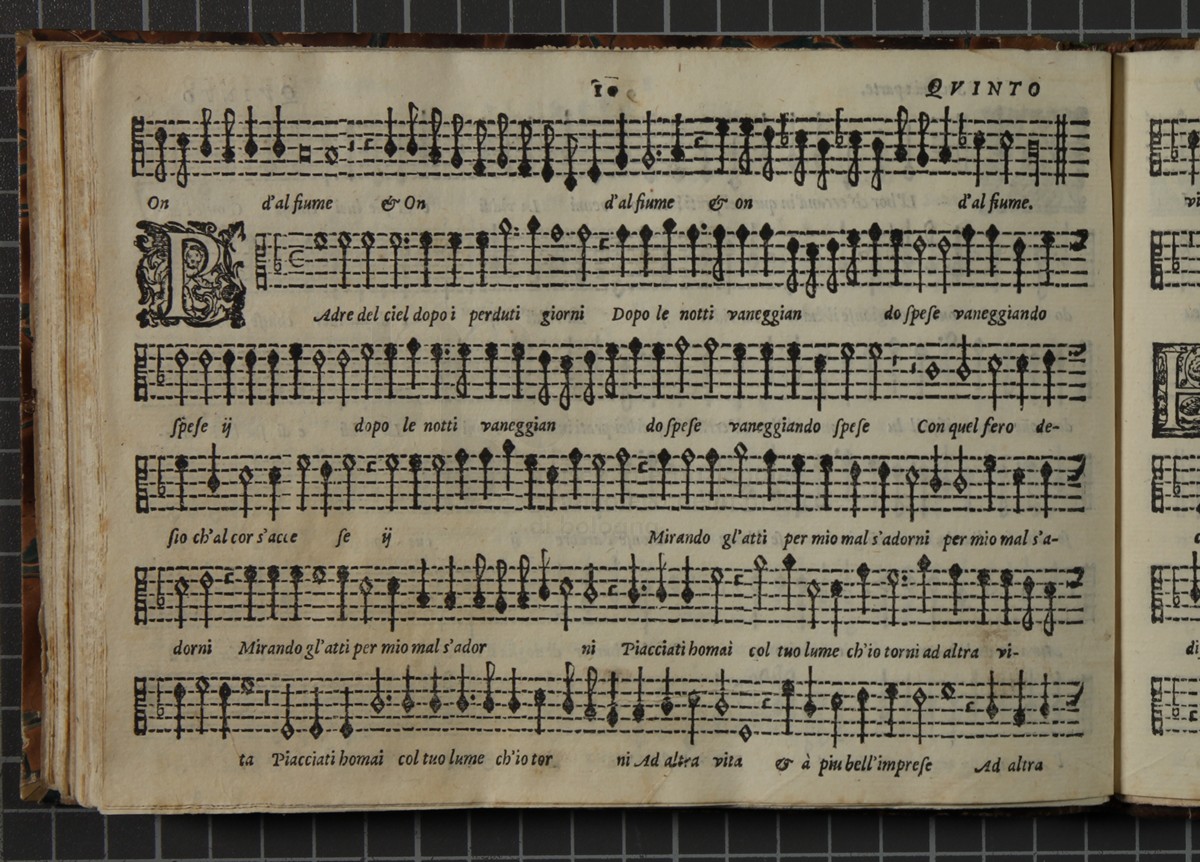 10 QVINTO
On d'al fiume & On d'al fiume & on d'al fiume.
P Adre del ciel dopo i perduti giorni Dopo le notti vaneggian do spese vaneggiando
spese ij dopo le notti vaneggian do spese vaneggiando spese Con quel fero de-
sio ch'al cor s'acce se ij Mirando gl'atti per mio mal s'adorni per mio mal s'a-
dorni Mirando gl'atti per mio mal s'ador ni Piacciati homai col tuo lume ch'io torni ad altra vi-
ta Piacciati homai col tuo lume ch'io tor ni Ad altra vita & à piu bell'imprese Ad altra